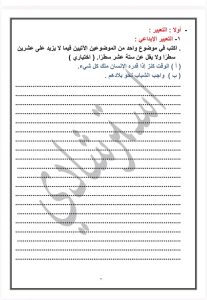 - أولا : التعبير :
١- التعبير الإبداعي :
. اكتب في موضوع واحد من الموضوعين الآتيين فيما لا يزيد على عشرين
سطرا ولا يقل عن ستة عشر سطرا. ( اختياري )
( أ ) الوقت كنز إذا قدره الإنسان ملك كل شيء.
( ب ) واجب الشباب نحو بلادهم .
استرشادي